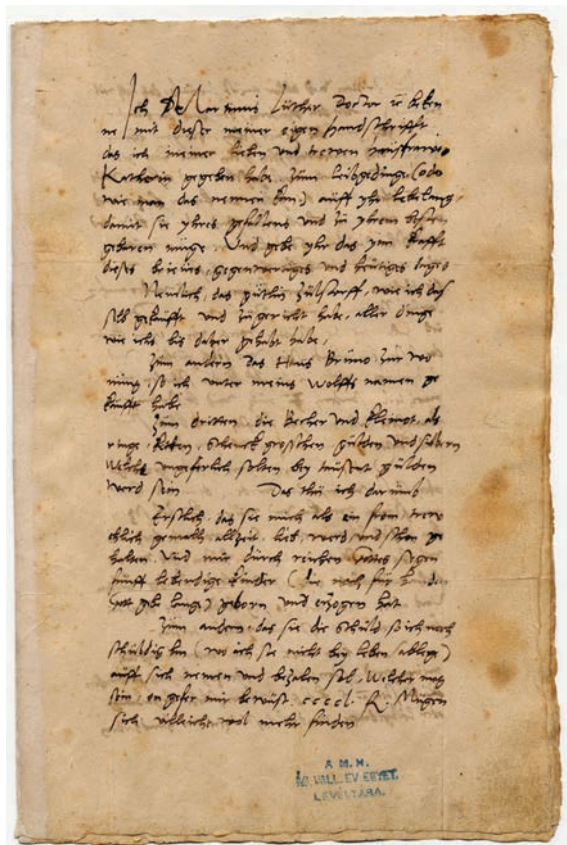 Ich D Martinus Luther Doctor etc beken
ne mit dieser meiner eigen handschrifft
das ich meiner lieben und trewen hausfrawen
Katherin gegeben habe zum leibgedinge (odder
wie man das nennen kan) auff yhr lebelang
damit sie yhres gefallens und zu yhrem besten
gebaren muge Und gebe yhr das ynn krafft
dieses brieves, gegenwertiges und heutiges tages
Nemlich, das gutlin Zulstorff, wie ich das
selb gekaufft und zugericht habe, aller dinge
wie ichs bis daher gehabt habe,
Zum andern das Haus Bruno zur wo
nung, so ich unter meins Wolffs namen ge
kaufft habe
Zum dritten die Becher und kleinot, als
ringe, keten, schenck groschen gulden und silbern
Welche ungeferlich solten bey tausent gulden
werd sein Das thu ich darumb
Erstlich, das sie mich als ein frum, trew
ehlich gemahl, allzeit lieb, werd, und schon ge
halten. Und mir durch reichen Gottes segen
funff lebendige kinder (die noch fur handen
Gott geb lange) geborn und erzogen hat
Zum andern, das sie die schuld, so ich noch
schuldig bin (wo ich sie nicht bey leben ablege)
auff sich nemen und bezalen sol, Welcher mag
sein, ongefer mir bewust, ccccl. fl. Mugen
sich villeicht wol mehr finden
A M. H.
EV. EGYET.
LEVÉLTÁRA.